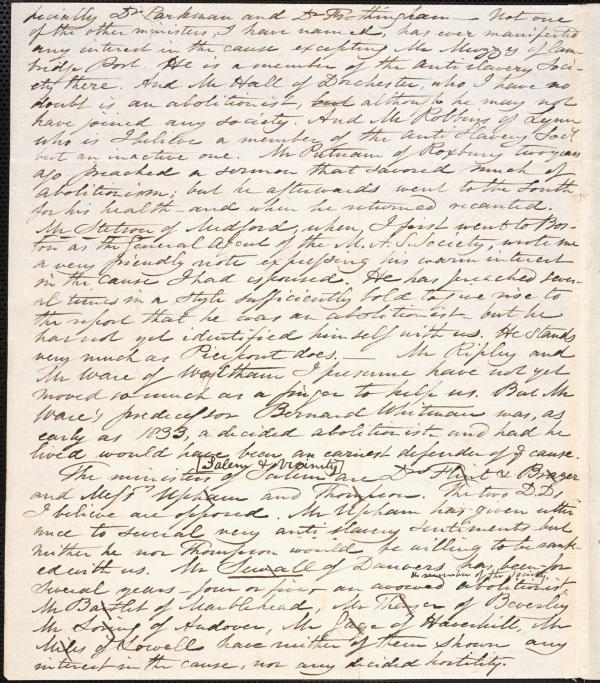 pecially Dr Parkman and Dr Frothingham — Not one
of the other ministers, I have named, has ever manifested
any interest in the cause excepting Mr Muzzey of Cam-
bridge Port. He is a member of the antislavery Soci-
ety there. And Mr Hall of Dorchester, who I have no
doubt is an abolitionist, but although he may not
have joined any society. And Mr Robbins of Lynn
who is I believe a member of the anti Slavery Soc'y
but an inactive one. Mr Putnam of Roxbury two years
ago preached a sermon that savored much of
abolitionism; but he afterwards went to the South
for his health - and when he returned recanted.
Mr Stetson of Medford, when, I first went to Bos-
ton as the General Agent of the M. A. S. Society, wrote me
a very friendly note expressing his warm interest
in the cause I had espoused. He has preached sever-
al times in a style sufficiently bold to give rise to
the report that he was an abolitionist - but he
has not yet identified himself with us. He stands
very much as Pierpont does. — Mr Ripley and
Mr Ware of Waltham I presume have not yet
moved so much as a finger to help us. But Mr
Ware's predecessor Bernard Whitman was, as
early as 1833, a decided abolitionist - and had he
lived would have been an earnest defender of ye cause.
Salem & Vicinity
The ministers of Salem are Drs Flint & Brazer
and Messrs Upham and Thompson. The two D.Ds
I believe are opposed. Mr Upham has given utter-
ance to several very anti slavery sentiments but
neither he nor Thompson would be willing to be rank-
ed with us. Mr Sewall of Danvers has been for
several years - four or five, an avowed abolitionist
Mr Bartlet of Marblehead, Mr Thayer of Beverley
Mr Loring of Andover, Mr Gage of Haverhill, Mr
Miles of Lowell have neither of them shown any
interest in the cause, nor any decided hostility.